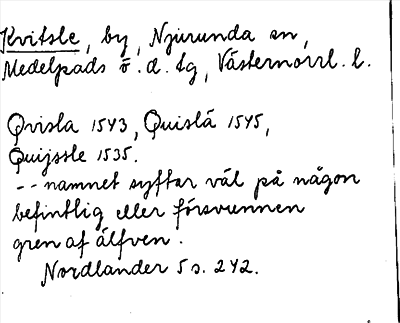 Kvitsle, by, Njurunda sn,
Medelpads ö. d. tg, Västernorrl. l.
Qvisla 1543, Quislä 1545,
Quijssle 1535.
-- namnet syftar väl på någon
befintlig eller försvunnen
gren af älfven.
Nordlander 5 s. 242.